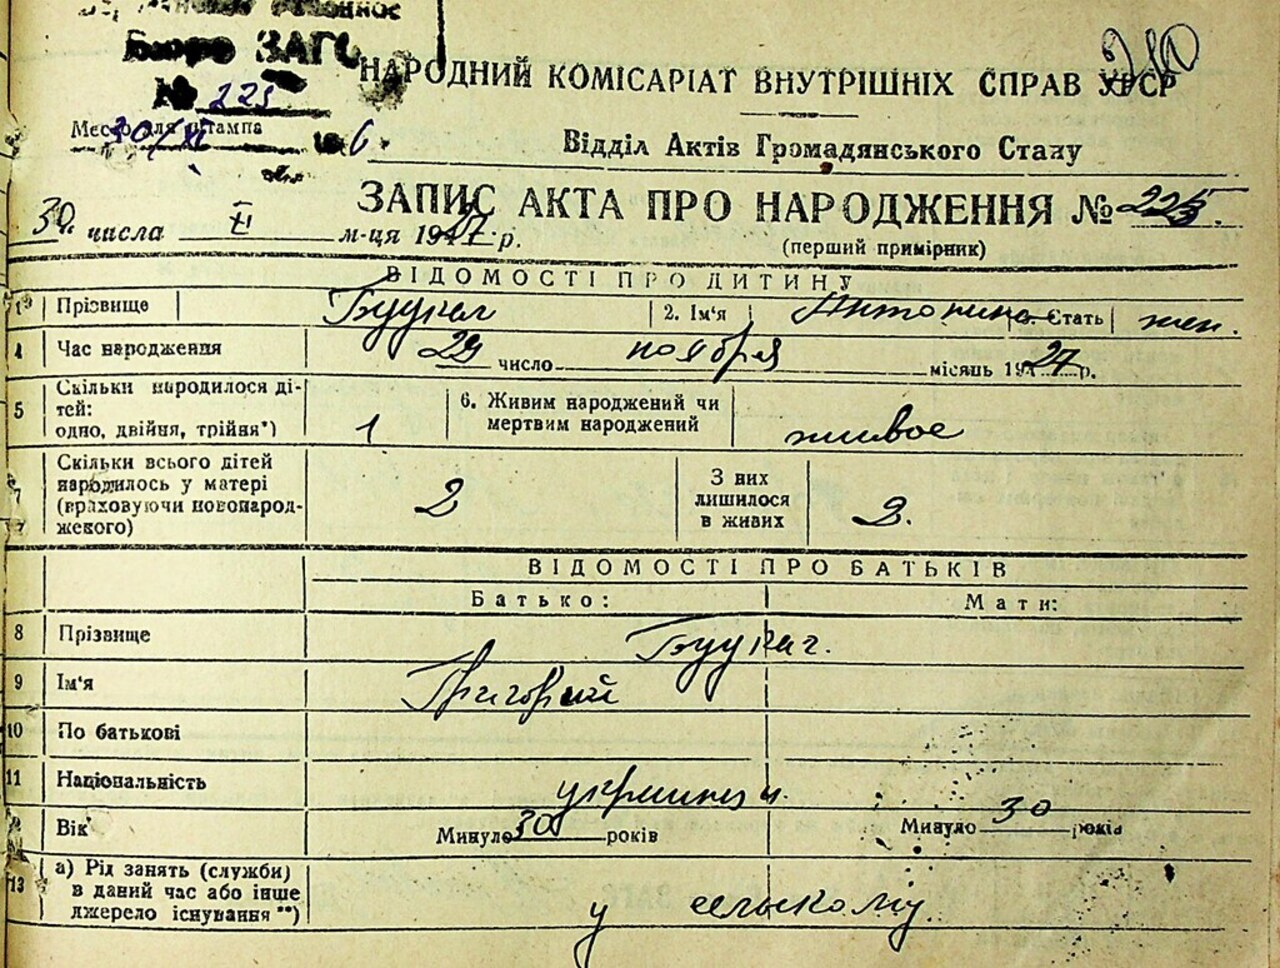 Бюро ЗАГС
240
№ 225
НАРОДНИЙ КОМІСАРІАТ ВНУТРІШНІХ СПРАВ УРСР
Место для штампа
30/XI 6
Відділ Актів Громадянського Стану
ЗАПИС АКТА ПРО НАРОДЖЕННЯ № 225.
30 числа XI м-ця 1927 р.
(перший примірник)
ВІДОМОСТІ ПРО ДИТИНУ
1 Прізвище 2. Ім'я Антонина 3. Стать жен.
4 Час народження 29 число ноября місяць 1927 р.
5 Скільки народилося ді-
тей:
одно, двійня, трійня*) 1
6. Живим народжений чи
мертвим народжений живое
7 Скільки всього дітей
народилось у матері
(враховуючи новонарод-
женого) 2
З них
лишилося
в живих 2.
ВІДОМОСТІ ПРО БАТЬКІВ
Батько: Мати:
8 Прізвище
9 Ім'я Григорий
10 По батькові
11 Національність
12 Вік Минуло 30 років Минуло 30 років
13 а) Рід занять (служби)
в даний час або інше
джерело існування **) у